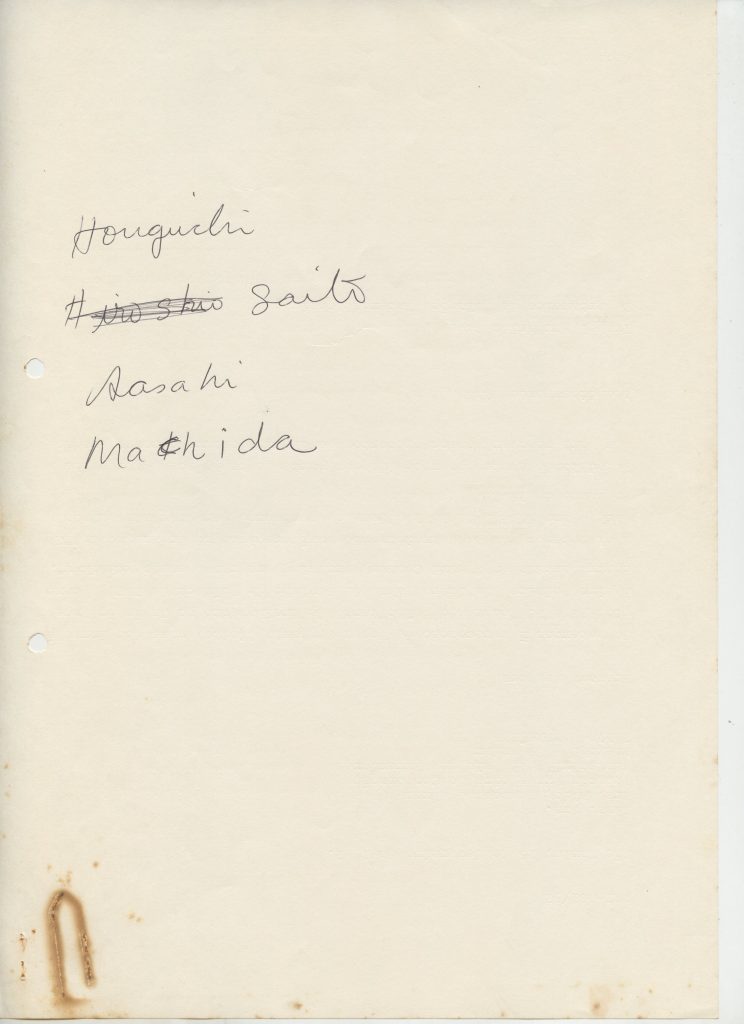 Honguchi
Hiroshio Saito
Aasahi
Machida